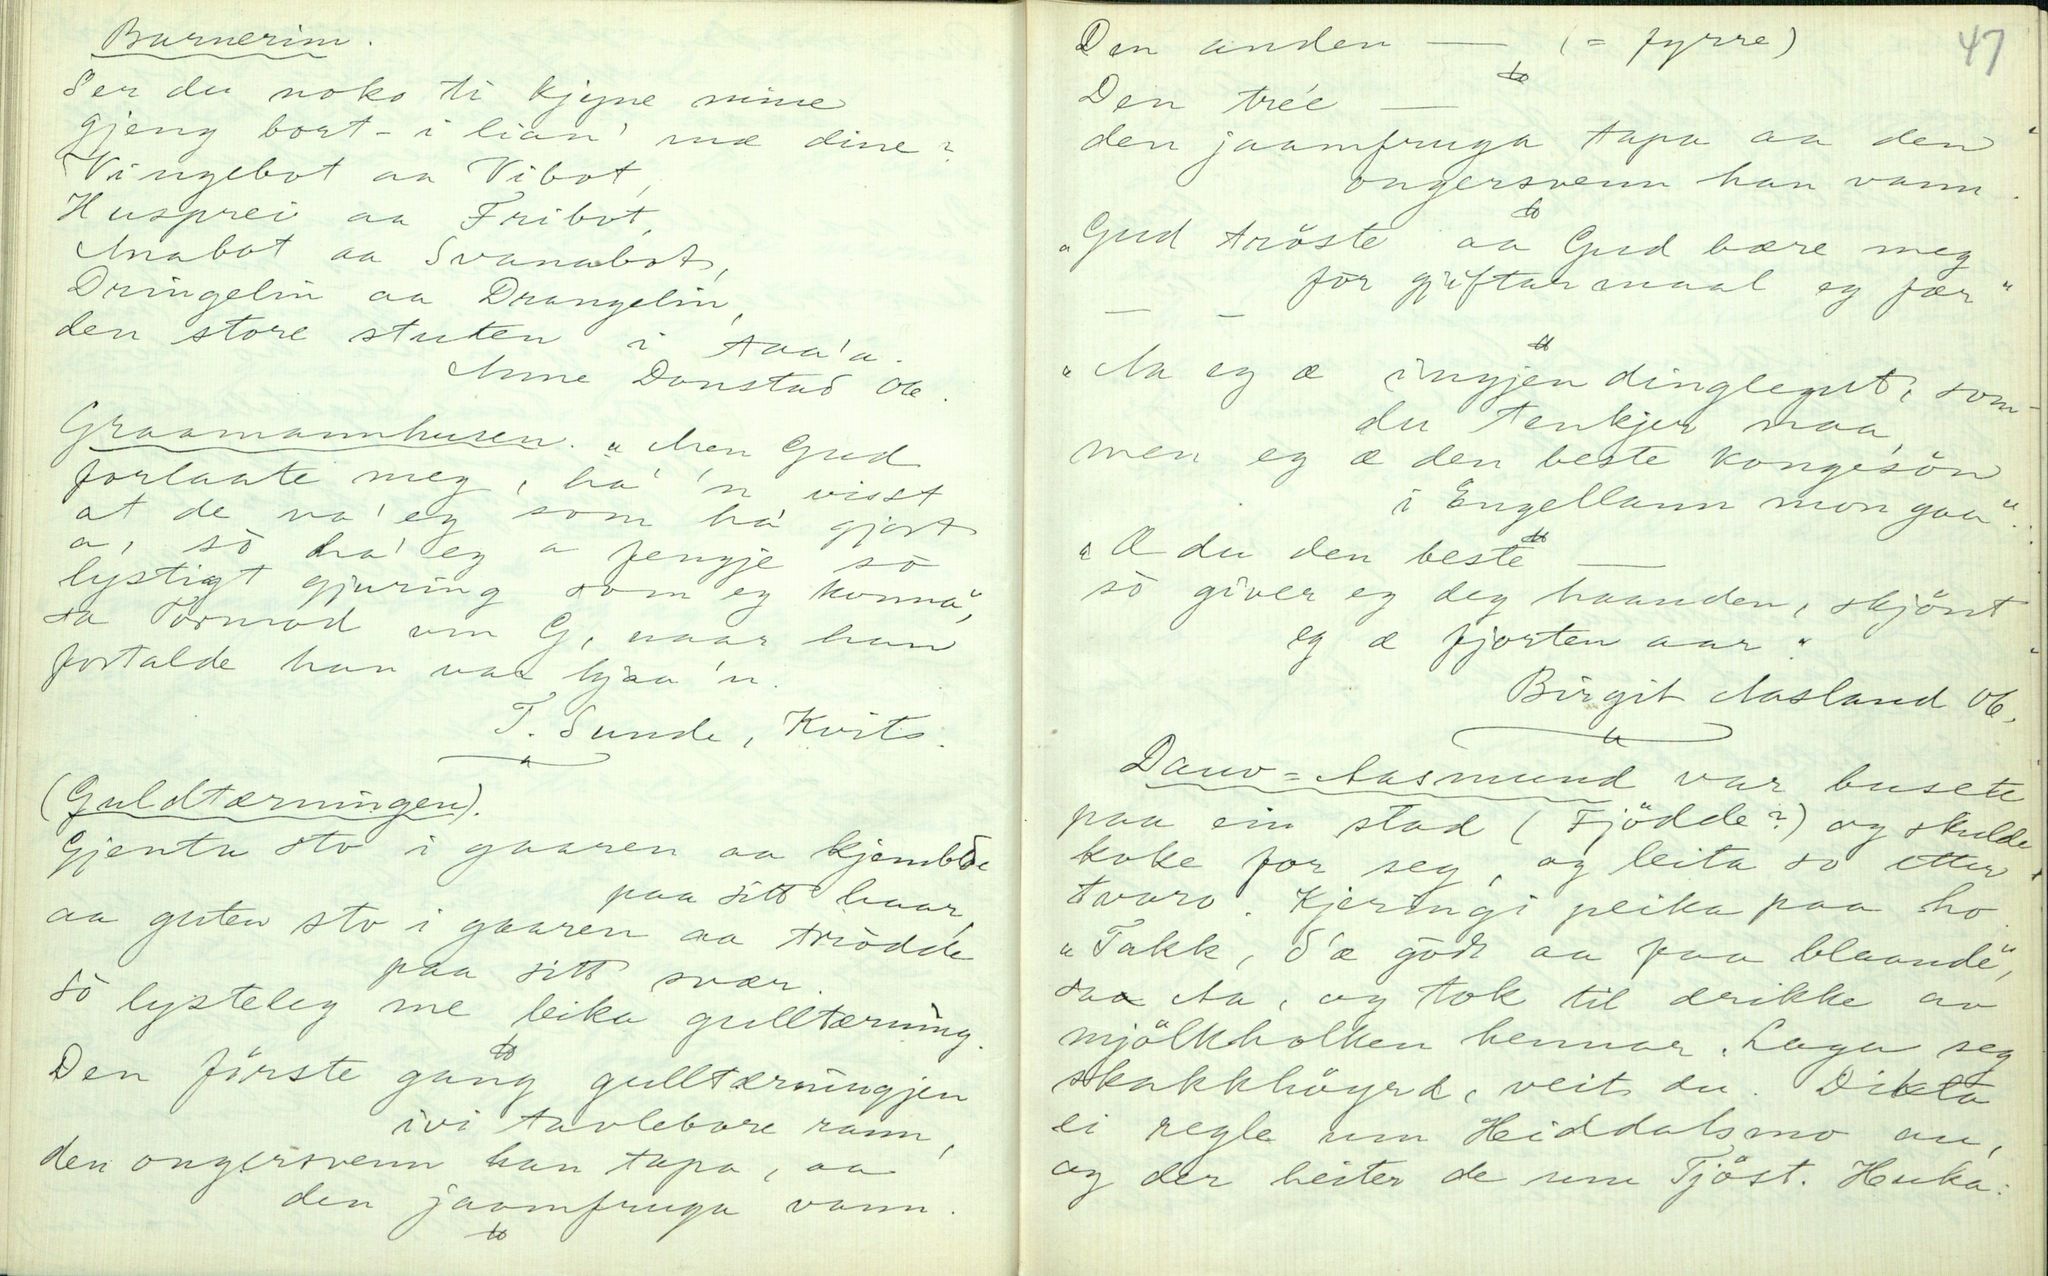 Barnerim.
Ser du noko ti kjyne mine
gjeng bort i lian' mæ dine?
Vingebot aa Vibot,
Husprei aa Fribot,
Anabot aa Svanabot,
Dringelin aa Drangelin,
den store stuten i taa'a.
Anne Donstad 06.
Graamannhusen. "Men Gud
forlaate meg, ha' 'n visst
at de va' eg som ha' gjort
a, sò ha' eg a fengje sò
lystigt gjuring som eg konna",
sa Tormod um G, naar han
fortalde han var hjaa 'n.
T. Sunde, Kvits.
(Guldtærningen).
Gjenta sto i gaaren aa kjembde
paa sitt haar,
aa guten sto i gaaren aa trödde
paa sitt svær.
Sò lysteleg me leika gulltærning.
Den förste gang gulltærningjen
ivi tavlebore rann,
den ongersvenn han tapa, aa
den jaamfruga vann.
47
Den anden — (= fyrre)
Den trée —
den jaamfruga tapa aa den
ongersvenn han vann.
"Gud tröste aa Gud bære meg
for gjiftarmaal eg fær"
— —
"Aa eg æ ingjen dinglegut, som
du tenkjer maa,
men eg æ den beste kongesön
i Engellann mon gaa".
"Æ du den beste —
sò giver eg deg haanden, skjönt
eg æ fjorten aar."
Birgit Aasland 06.
Dauv-Aasmund var busett
paa ein stad (Fjödde?) og skulde
koke for seg, og leita so etter
tvaro. Kjeringi peika paa ho.
"Takk, d'æ godt aa faa blaande",
saa Aa, og tok til drikke av
mjölkholken hennar. Laga seg
skakkhöyrd, veit du. Dikta
ei regle um Heiddalsmo au,
og der heiter de um Tjöst. Huka: